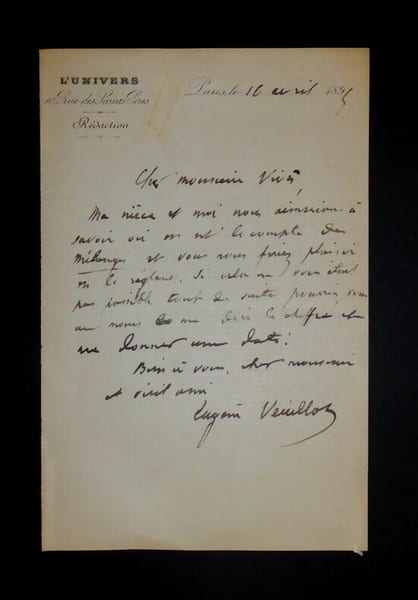 L'UNIVERS
10 Rue des Saints Pères
Rédaction
Paris, le 16 avril 1895
Cher monsieur Vivès,
Ma nièce et moi nous aimerions à
savoir où en est le compte des
Mélanges et vous nous feriez plaisir
en le réglant. Si cela ne vous était
pas possible tout de suite pourriez vous
au moins me dire le chiffre et
me donner une date?
Bien à vous, cher monsieur
et vieil ami
Eugène Veuillot